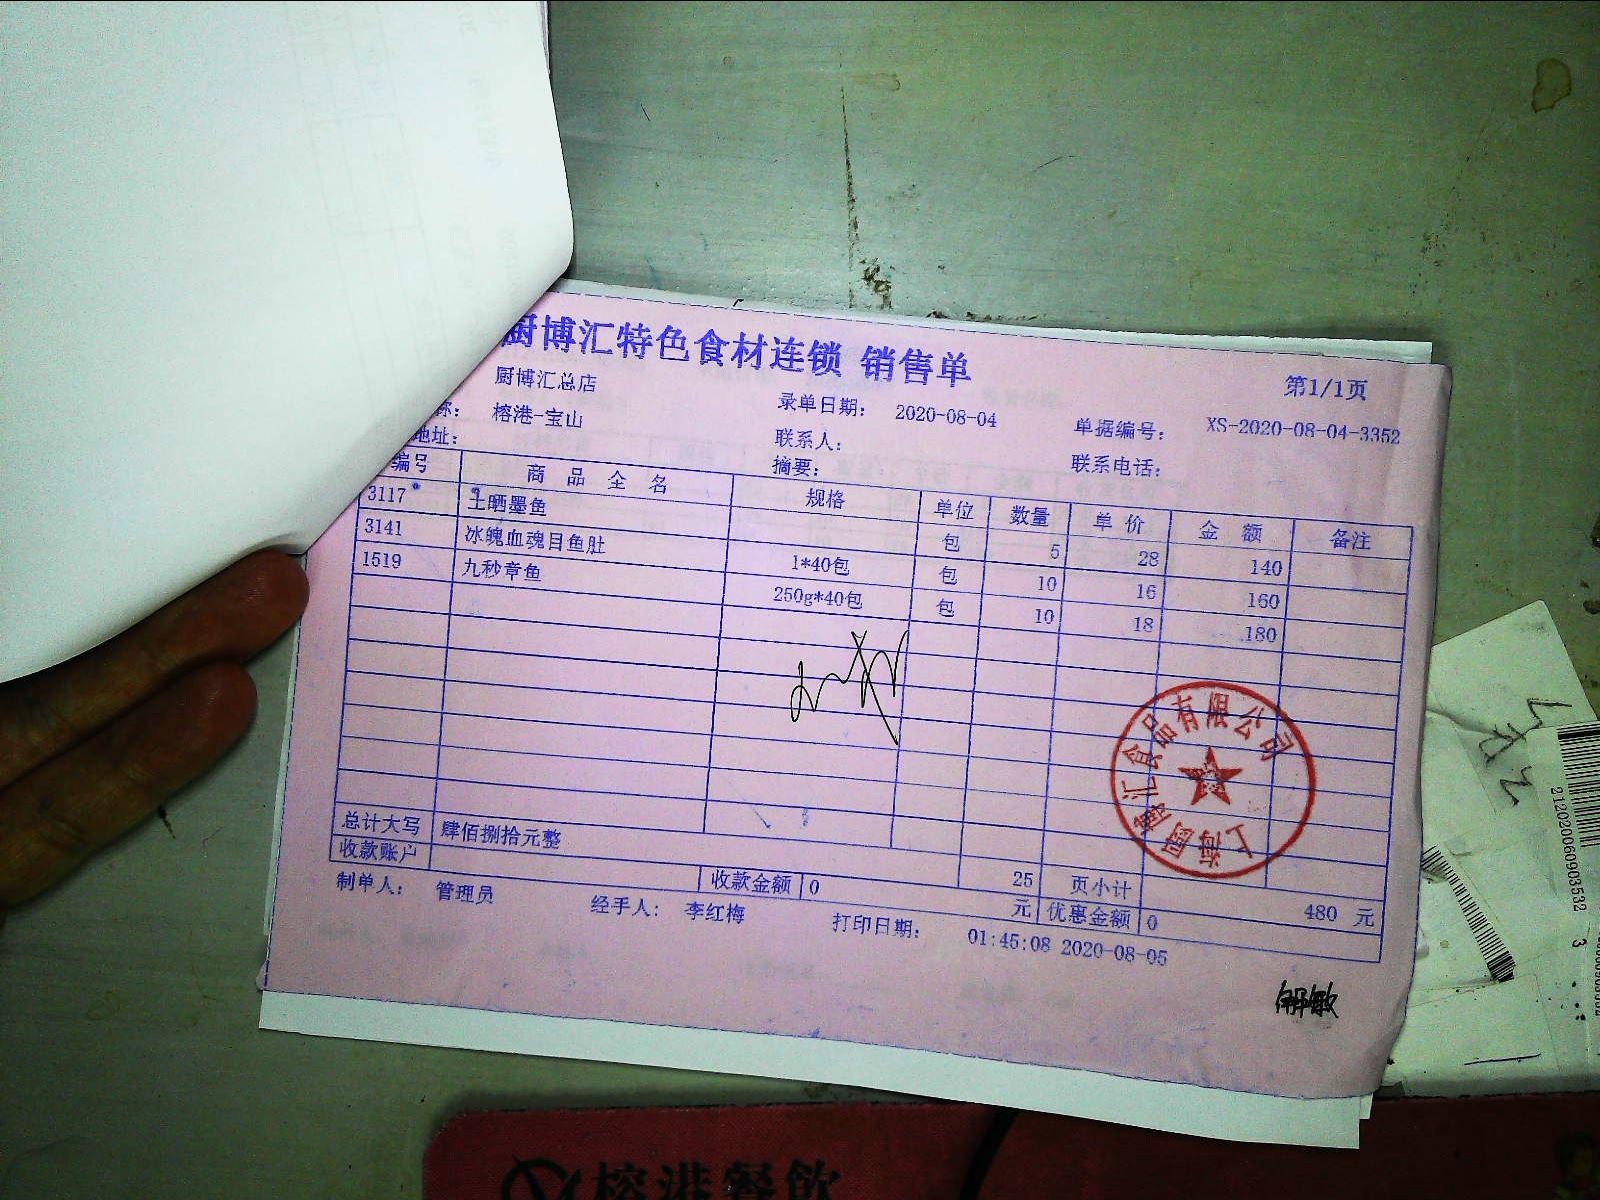 厨博汇特色食材连锁 销售单
第1/1页
厨博汇总店
称： 榕港-宝山 录单日期： 2020-08-04 单据编号： XS-2020-08-04-3352
地址： 联系人： 联系电话：
摘要：
编号 商品全名 规格 单位 数量 单价 金额 备注
3117 土晒墨鱼 包 5 28 140
3141 冰魄血魂目鱼肚 1*40包 包 10 16 160
1519 九秒章鱼 250g*40包 包 10 18 180
总计大写 肆佰捌拾元整 25 页小计 480 元
收款账户 收款金额 0 元 优惠金额 0
制单人： 管理员 经手人： 李红梅 打印日期： 01:45:08 2020-08-05
上海厨博汇食品有限公司
212020060903532 3
榕港餐饮